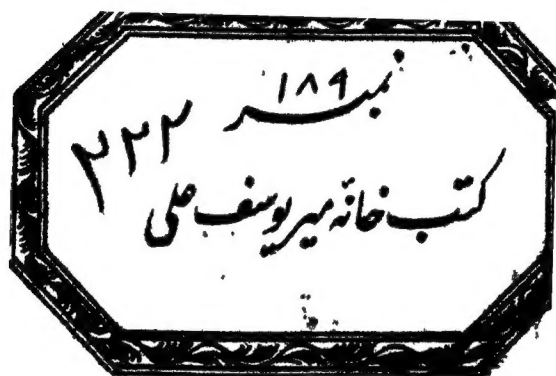 نمبر ۱۸۹
۲۲۲
کتب خانهٔ میر یوسف علی